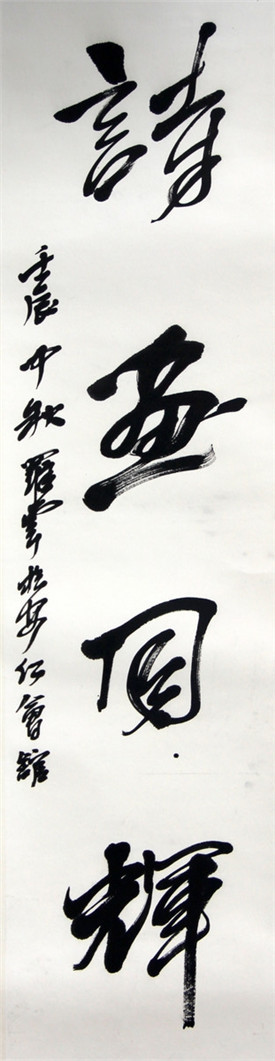 詩画同輝
壬辰中秋羅寧於安仁會館